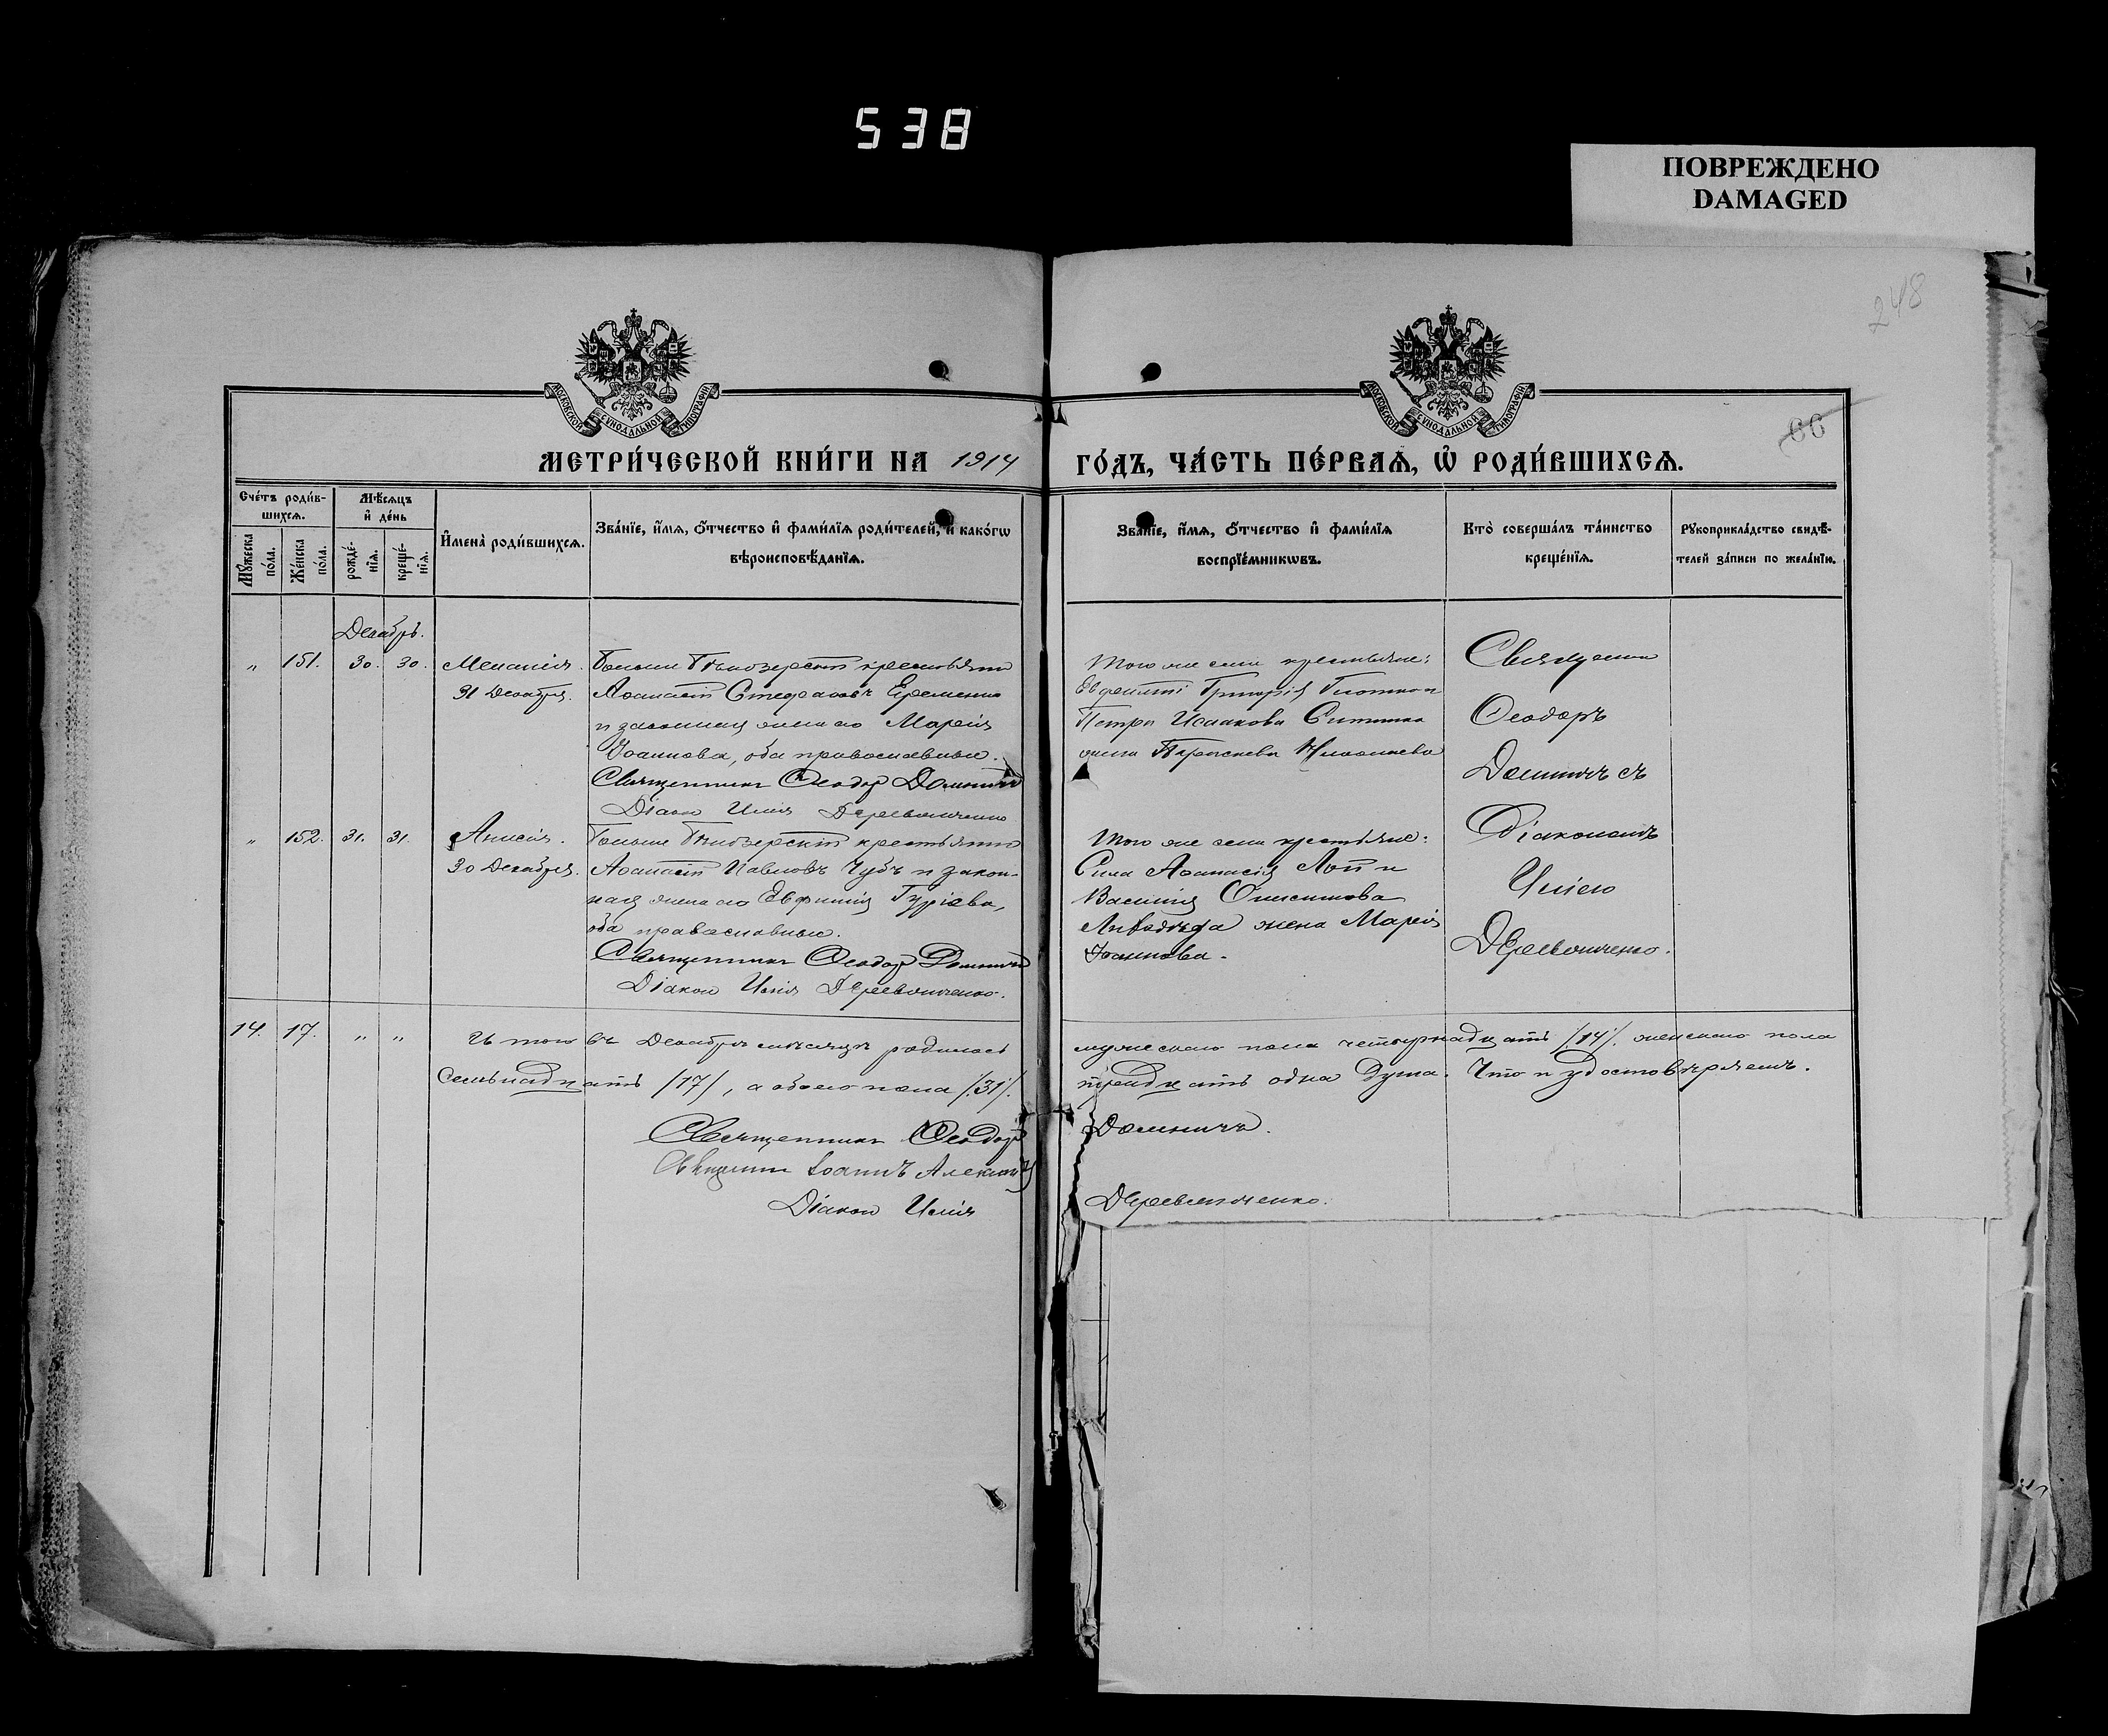 538
ПОВРЕЖДЕНО
DAMAGED
248
МОСКОВСКОЙ СѴНОДАЛЬНОЙ ТИПОГРАФІИ
МОСКОВСКОЙ СѴНОДАЛЬНОЙ ТИПОГРАФІИ
66
МЕТРИ́ЧЕСКОЙ КНИ́ГИ НА 1914
ГО́ДЪ, ЧА́СТЬ ПЕ́РВАѦ, Ѡ҆ РОДИ́ВШИХСѦ.
Сче́тъ роди́в-
шихсѧ.
Мꙋ́жеска
по́ла.
Же́нска
по́ла.
Мѣ́сѧцъ
и҆ де́нь
рожде́-
нїѧ.
креще́-
нїѧ.
И҆мена̀ роди́вшихсѧ.
Зва́нїе, и҆́мѧ, ѻ҆́тчество и҆ фами́лїѧ роди́телей, и҆ како́гѡ
вѣроисповѣ́данїѧ.
Зва́нїе, и҆́мѧ, ѻ҆́тчество и҆ фами́лїѧ
воспрїе́мникѡвъ.
Кто̀ соверша́лъ та́инство
креще́нїѧ.
Рꙋкоприкла́дство свидѣ́-
телей за́писи по жела́нїю.
Декабрь.
" 151. 30. 30. Меланія.
31 Декабря.
крестьянинъ
Аѳанасій Стефановъ Еременко
и законная жена его Марія
Іоаннова, оба православные.
Священникъ Ѳеодоръ Доминичъ
Діаконъ Илія Деревянченко
Того же села крестьяне:
Евфимій Григорія и
Петра Исаакова
жена Параскева
Священникъ
Ѳеодоръ
Доминичъ съ
Діакономъ
Иліею
Деревянченко.
" 152. 31. 31. Анисія.
30 Декабря.
крестьянинъ
Аѳанасій Павловъ Чубъ и закон-
ная жена его Евфимія Гуріева,
оба православные.
Священникъ Ѳеодоръ Доминичъ
Діаконъ Илія Деревянченко.
Того же села крестьяне:
Сила Аѳанасія и
Василія Онисимова
жена Марія
Іоаннова.
14. 17. " "
того въ Декабрѣ мѣсяцѣ родилось
мужескаго пола четырнадцать /14/. женскаго пола
семнадцать /17/, а обоего пола /31/.
тридцать одна душа. Что и удостовѣряемъ.
Священникъ Ѳеодоръ
Доминичъ.
Священникъ Іоаннъ
Діаконъ Илія
Деревянченко.